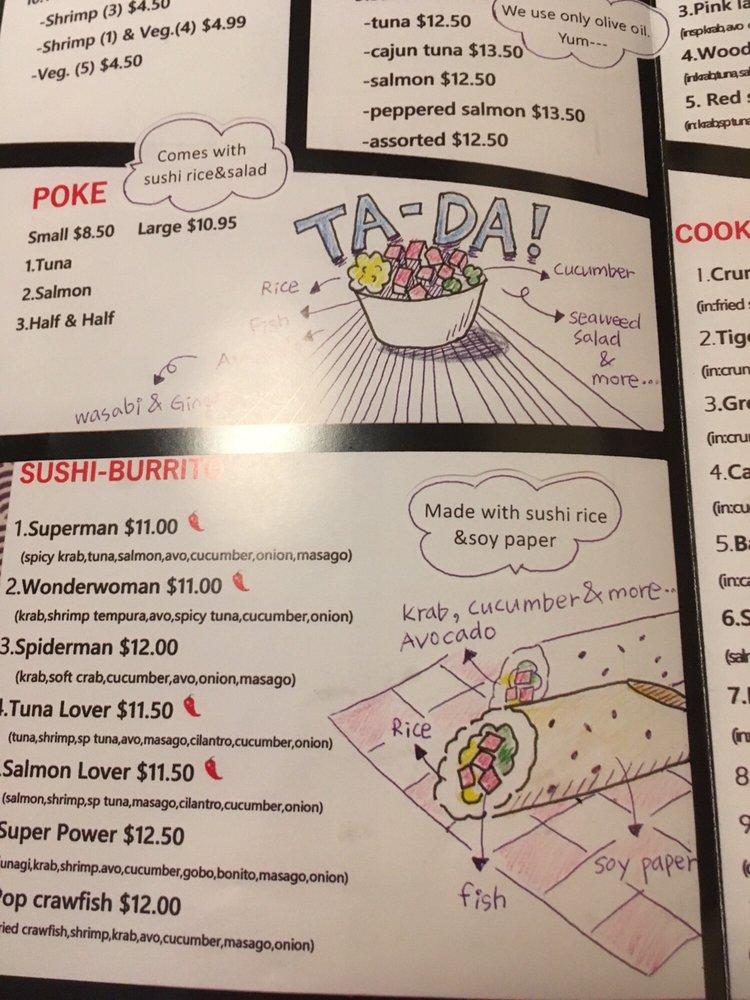 -Shrimp (3) $4.50
-Shrimp (1) & Veg.(4) $4.99
-Veg. (5) $4.50
-tuna $12.50
-cajun tuna $13.50
-salmon $12.50
-peppered salmon $13.50
-assorted $12.50
We use only olive oil.
Yum---
Comes with
sushi rice&salad
POKE
Small $8.50 Large $10.95
1.Tuna
2.Salmon
3.Half & Half
TA-DA!
Rice
Fish
wasabi &
Cucumber
seaweed
salad
&
more...
SUSHI-BURRITO
1.Superman $11.00
(spicy krab,tuna,salmon,avo,cucumber,onion,masago)
2.Wonderwoman $11.00
(krab,shrimp tempura,avo,spicy tuna,cucumber,onion)
3.Spiderman $12.00
(krab,soft crab,cucumber,avo,onion,masago)
.Tuna Lover $11.50
(tuna,shrimp,sp tuna,avo,masago,cilantro,cucumber,onion)
.Salmon Lover $11.50
(salmon,shrimp,sp tuna,masago,cilantro,cucumber,onion)
Super Power $12.50
unagi,krab,shrimp.avo,cucumber,gobo,bonito,masago,onion)
Pop crawfish $12.00
ried crawfish,shrimp,krab,avo,cucumber,masago,onion)
Made with sushi rice
&soy paper
Krab, cucumber & more..
Avocado
Rice
fish
soy paper
3.Pink
4.Wood
5. Red
COOK
1.Crun
(in:fried
2.Tig
(in:crun
3.Gre
(in:cru
4.Ca
(in:cu
5.Ba
(in:ca
6.S
(sal
7.
(in
8
9